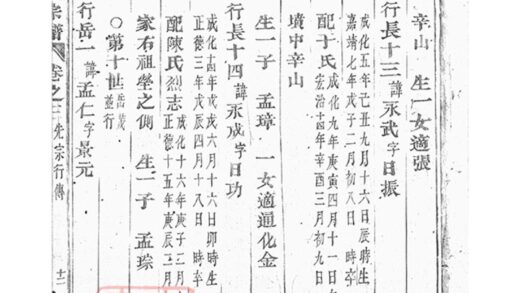 辛山 生一女適張
行長十三 諱永武字日振
成化五年己丑九月十六日辰時生
嘉靖七年戊子二月初八日 時卒
配于氏 成化九年庚寅四月十一日
宏治十四年辛酉三月初九日
墳中辛山
生一子 孟璋 一女適通化金
行長十四 諱永成字日功
成化十四年戊戌六月十六日卯時生
正德三年戊辰四月十八日 時卒
配陳氏烈志 成化十六年庚子二月
正德十五年庚辰三月
家右祖塋之側 生一子 孟琮
○第十世 並行
行岳一 諱孟仁字景元
宗譜 卷之 先宗行傳 十二